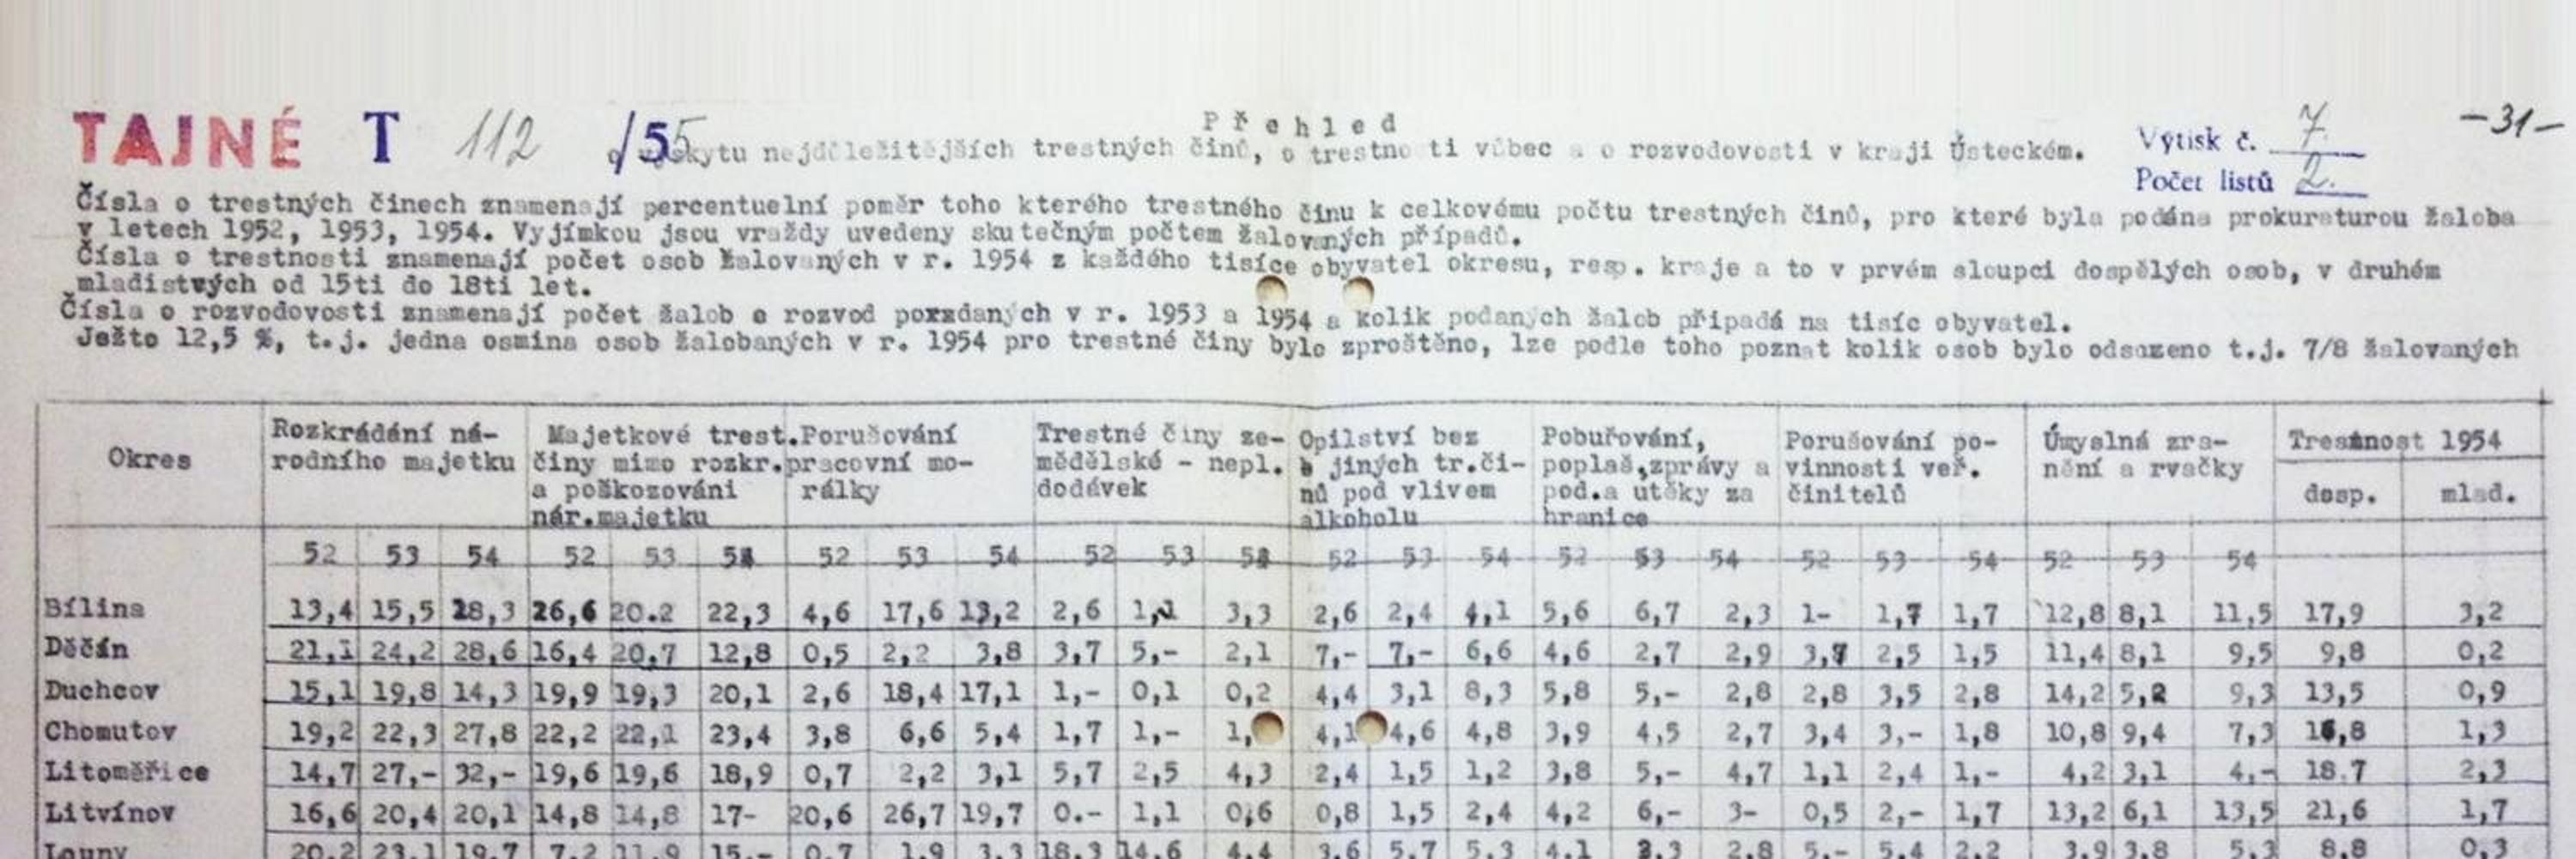 TAJNÉ T 112 /55
Přehled
Výtisk č. 7.
-31-
výskytu nejdůležitějších trestných činů, o trestnosti vůbec a o rozvodovosti v kraji Ústeckém.
Počet listů 2.
Čísla o trestných činech znamenají percentuelní poměr toho kterého trestného činu k celkovému počtu trestných činů, pro které byla podána prokuraturou žaloba
v letech 1952, 1953, 1954. Vyjímkou jsou vraždy uvedeny skutečným počtem žalovaných případů.
Čísla o trestnosti znamenají počet osob žalovaných v r. 1954 z každého tisíce obyvatel okresu, resp. kraje a to v prvém sloupci dospělých osob, v druhém
mladistvých od 15ti do 18ti let.
Čísla o rozvodovosti znamenají počet žalob o rozvod podaných v r. 1953 a 1954 a kolik podaných žalob připadá na tisíc obyvatel.
Ježto 12,5 %, t.j. jedna osmina osob žalobaných v r. 1954 pro trestné činy bylo zproštěno, lze podle toho poznat kolik osob bylo odsouzeno t.j. 7/8 žalovaných
Okres
Rozkrádání ná-
rodního majetku
Majetkové trest.
činy mimo rozkr.
a poškozování
nár.majetku
Porušování
pracovní mo-
rálky
Trestné činy ze-
mědělské - nepl.
dodávek
Opilství bez
jiných tr.či-
nů pod vlivem
alkoholu
Pobuřování,
poplaš.zprávy a
pod.a utěky za
hranice
Porušování po-
vinnosti veř.
činitelů
Úmyslná zra-
nění a rvačky
Trestnost 1954
dosp. mlad.
52 53 54 52 53 54 52 53 54 52 53 54 52 53 54 52 53 54 52 53 54 52 53 54
Bílina 13,4 15,5 18,3 26,6 20.2 22,3 4,6 17,6 13,2 2,6 1,1 3,3 2,6 2,4 4,1 5,6 6,7 2,3 1- 1,7 1,7 12,8 8,1 11,5 17,9 3,2
Děčín 21,1 24,2 28,6 16,4 20,7 12,8 0,5 2,2 3,8 3,7 5,- 2,1 7,- 7,- 6,6 4,6 2,7 2,9 3,7 2,5 1,5 11,4 8,1 9,5 9,8 0,2
Duchcov 15,1 19,8 14,3 19,9 19,3 20,1 2,6 18,4 17,1 1,- 0,1 0,2 4,4 3,1 8,3 5,8 5,- 2,8 2,8 3,5 2,8 14,2 5,2 9,3 13,5 0,9
Chomutov 19,2 22,3 27,8 22,2 22,1 23,4 3,8 6,6 5,4 1,7 1,- 1, 4,1 4,6 4,8 3,9 4,5 2,7 3,4 3,- 1,8 10,8 9,4 7,3 16,8 1,3
Litoměřice 14,7 27,- 32,- 19,6 19,6 18,9 0,7 2,2 3,1 5,7 2,5 4,3 2,4 1,5 1,2 3,8 5,- 4,7 1,1 2,4 1,- 4,2 3,1 4,- 18.7 2,3
Litvínov 16,6 20,4 20,1 14,8 14,8 17- 20,6 26,7 19,7 0.- 1,1 0,6 0,8 1,5 2,4 4,2 6,- 3- 0,5 2,- 1,7 13,2 6,1 13,5 21,6 1,7
Louny 20,2 23,1 19,7 7,2 11,9 15,- 0,7 1,9 3,3 18,3 14,6 4,4 3,6 5,7 5,3 4,1 3,3 2,8 5,- 5,4 2,2 3,9 3,8 5,3 8,8 0,3